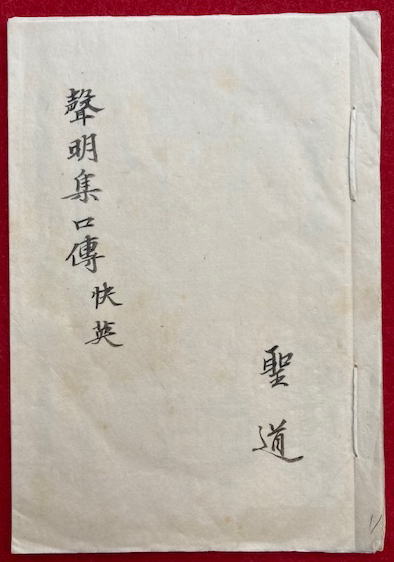 聖道
聲明集口傳 快英